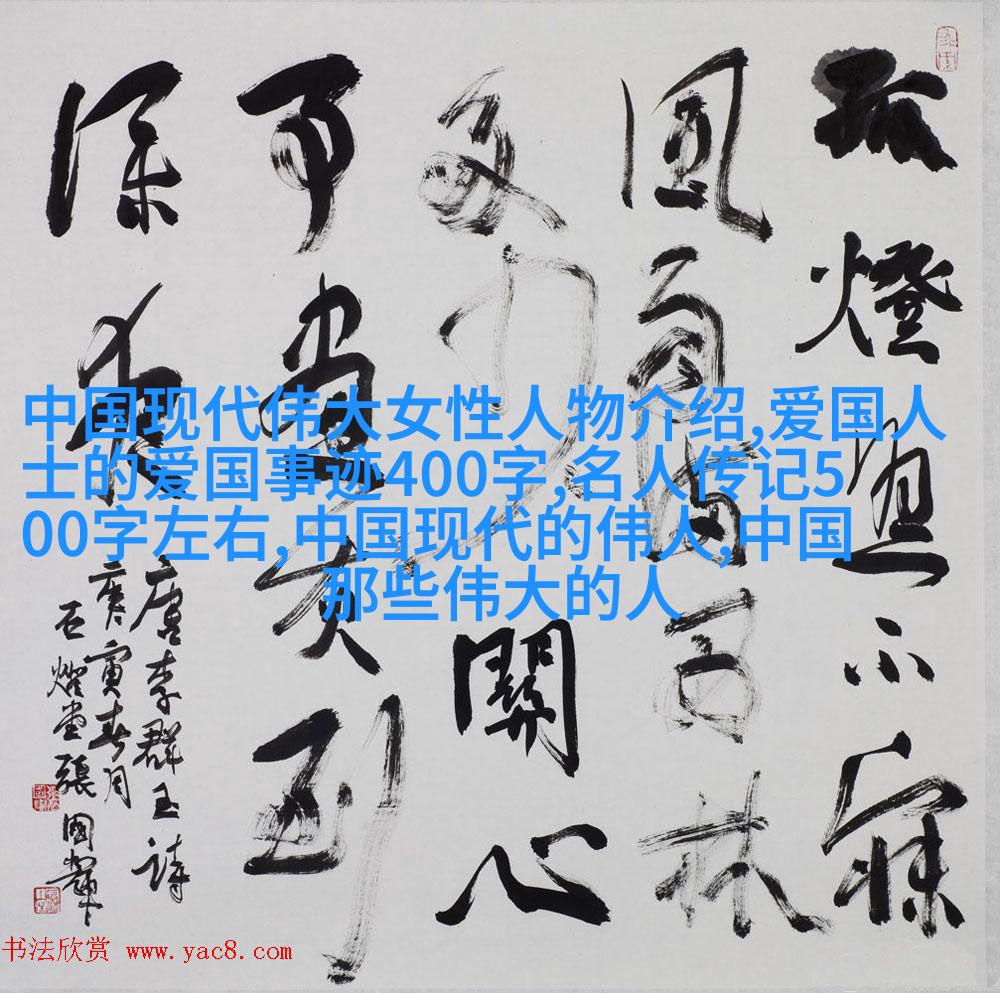 孤燈照不寐
風雨滿西林
多少關心
事書灰到
深夜
唐李群玉詩
庚寅春月
石堂張國輝
中国现代伟大女性人物介绍,爱国人
士的爱国事迹400字,名人传记5
00字左右,中国现代的伟人,中国
那些伟大的人
书法欣赏 www.yac8.com